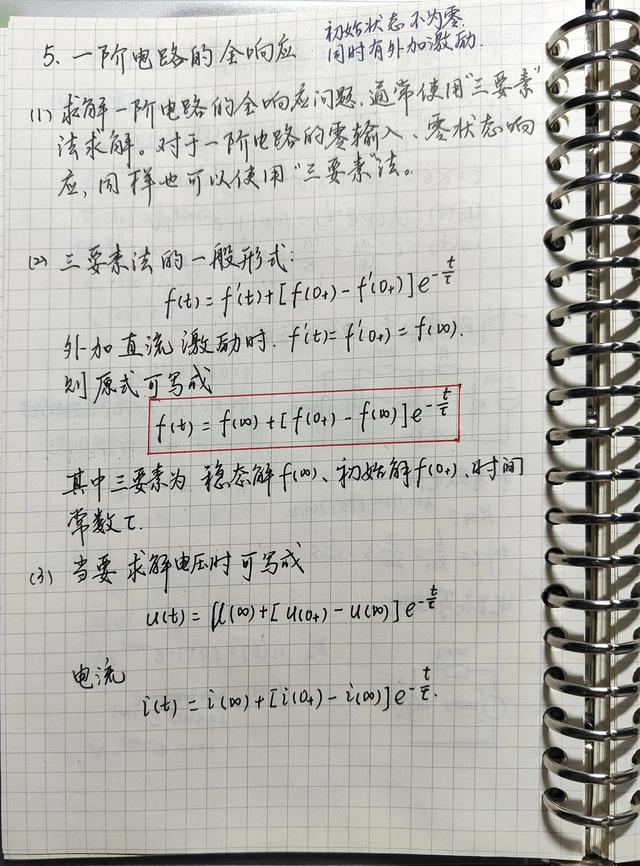 5、一阶电路的全响应
初始状态不为零.
同时有外加激励.
(1) 求解一阶电路的全响应问题,通常使用"三要素"
法求解。对于一阶电路的零输入、零状态响
应,同样也可以使用"三要素"法。
(2) 三要素法的一般形式:
f(t)=f'(t)+[f(0₊)-f'(0₊)]e^{-t/τ}
外加直流激励时. f'(t)=f'(0₊)=f(∞).
则原式可写成
f(t)=f(∞)+[f(0₊)-f(∞)]e^{-t/τ}
其中三要素为 稳态解f(∞)、初始解f(0₊)、时间
常数τ.
(3) 当要求解电压时可写成
u(t)=u(∞)+[u(0₊)-u(∞)]e^{-t/τ}
电流
i(t)=i(∞)+[i(0₊)-i(∞)]e^{-t/τ}.